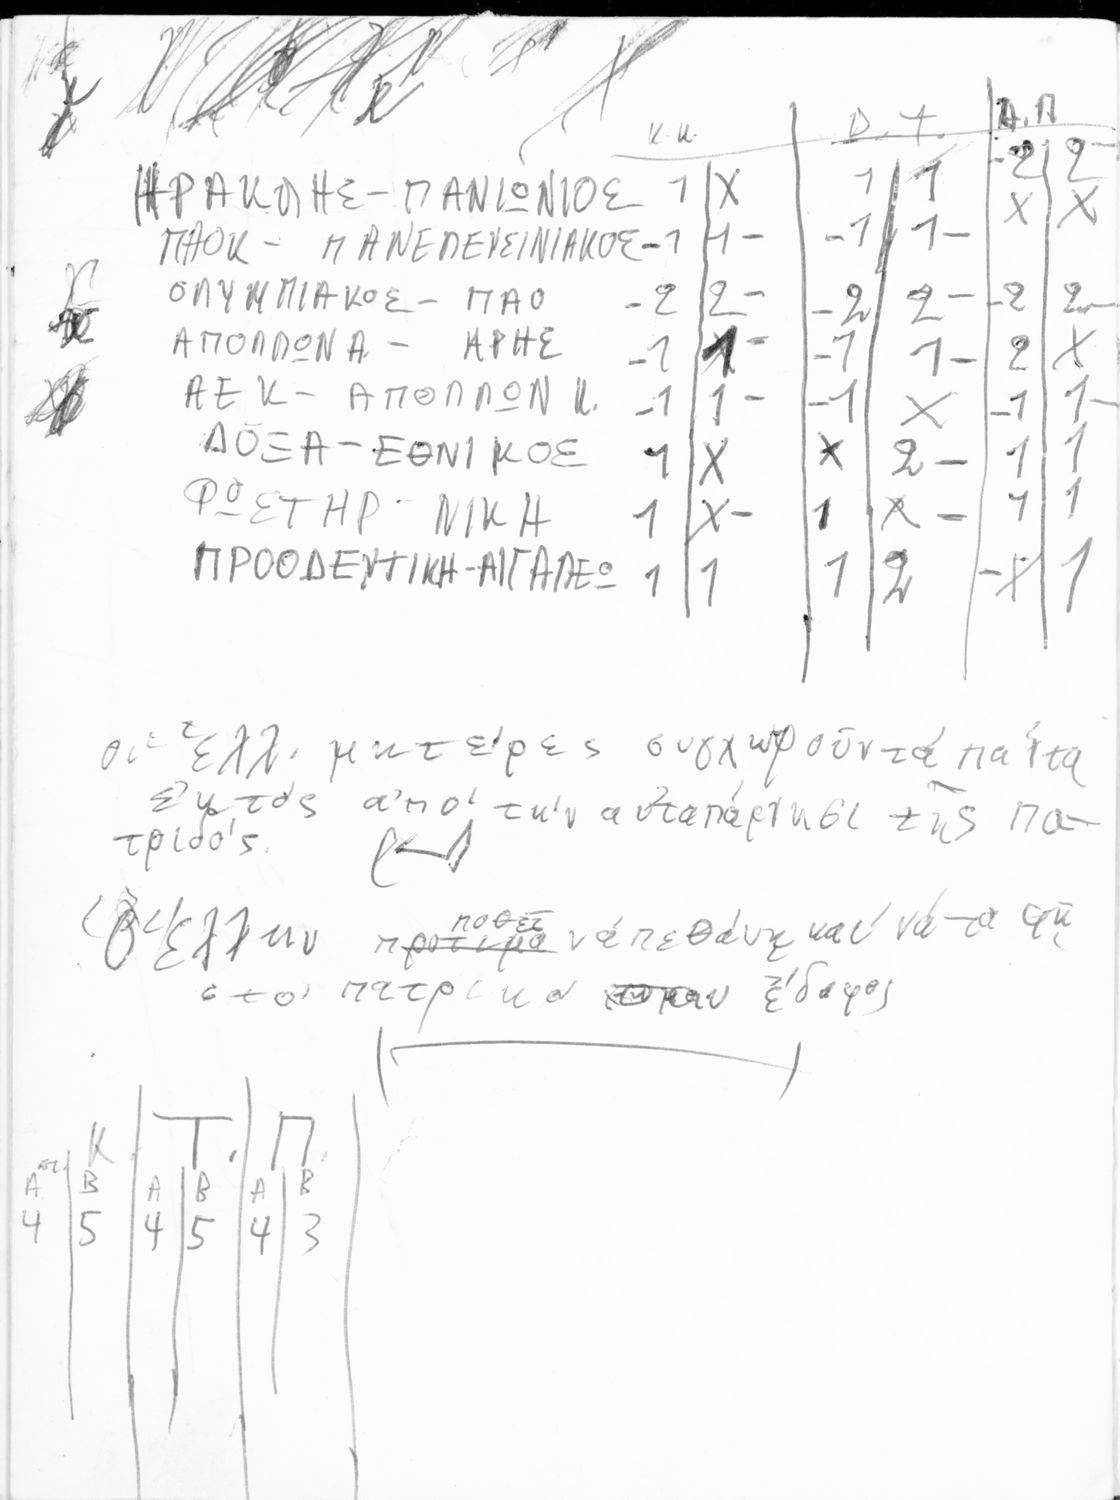 Κ.Κ. D.T. Α.Π
ΗΡΑΚΛΗΣ - ΠΑΝΙΩΝΙΟΣ 1 X 1 1 -2 2-
ΠΑΟΚ - ΠΑΝΕΛΕΥΣΙΝΙΑΚΟΣ -1 1- -1 1- X X
ΟΛΥΜΠΙΑΚΟΣ - ΠΑΟ -2 2- -2 2- -2 2-
ΑΠΟΛΛΩΝ Α. - ΑΡΗΣ -1 1- -1 1- 2 X
ΑΕΚ - ΑΠΟΛΛΩΝ Κ. -1 1- -1 X -1 1-
ΔΟΞΑ - ΕΘΝΙΚΟΣ 1 X X 2- 1 1
ΦΩΣΤΗΡ - ΝΙΚΗ 1 X- 1 X- 1 1
ΠΡΟΟΔΕΥΤΙΚΗ - ΑΙΓΑΛΕΩ 1 1 1 2 -X 1
οἱ Ἑλλ. μητέρες συγχωροῦν τά πάντα
ἐκτός ἀπό τήν αὐταπάρνησι τῆς πα-
τρίδος.
Ὁ Ἕλλην προτιμᾶ ποθεῖ νά πεθάνη καί νά ταφῆ
στό πατρικό ἔδαφος
Κ. Τ. Π.
Α Β Α Β Α Β
4 5 4 5 4 3